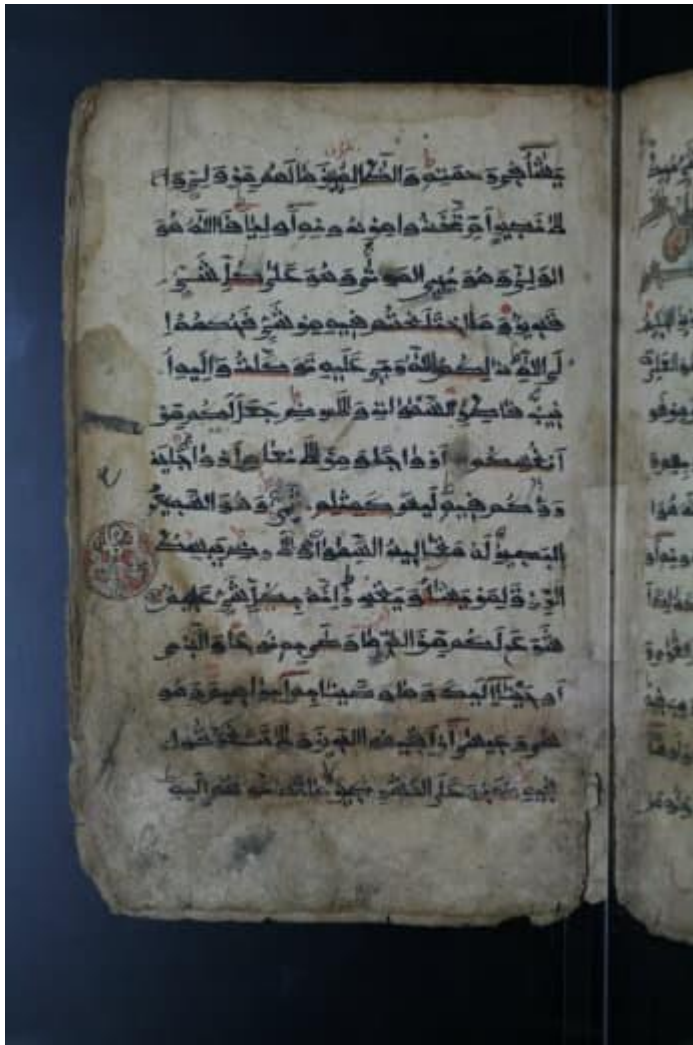 يشاء في رحمته والظالمون ما لهم من ولي و
لا نصير ام اتخذوا من دونه اولياء فالله هو
الولي وهو يحيي الموتى وهو على كل شيء
قدير وما اختلفتم فيه من شيء فحكمه ا
لى الله ذلكم الله ربي عليه توكلت واليه ا
نيب فاطر السموات والارض جعل لكم من
انفسكم ازواجا ومن الانعام ازواجا يذ
رؤكم فيه ليس كمثله شيء وهو السميع
البصير له مقاليد السموات والارض يبسط
الرزق لمن يشاء ويقدر انه بكل شيء عليم
شرع لكم من الدين ما وصى به نوحا والذي
اوحينا اليك وما وصينا به ابراهيم ومو
سى وعيسى ان اقيموا الدين ولا تتفرقوا
فيه كبر على المشركين ما تدعوهم اليه